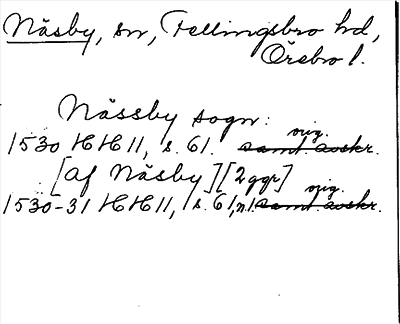 Näsby, sn, Fellingsbro hd,
Örebro l.
Nässby sogn:
orig.
1530 HH 11, s. 61. samt. avskr.
[af Näsby] [2 ggr]
orig.
1530-31 HH 11, s. 61, n.1 samt. avskr.